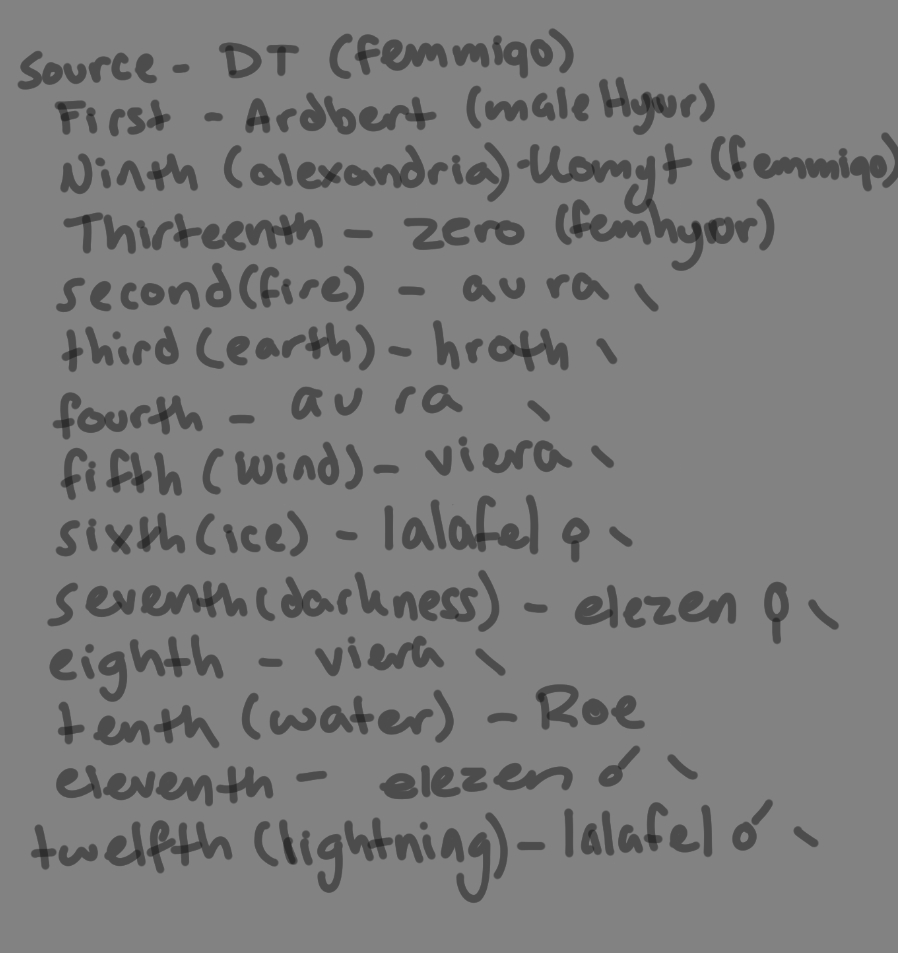 Source - DT (femmiqo)
First - Ardbert (male Hyur)
Ninth (alexandria) - Uomyt (femmiqo)
Thirteenth - zero (femhyur)
second (fire) - au ra \
third (earth) - hroth \
fourth - au ra \
fifth (wind) - viera \
sixth (ice) - lalafel ♀ \
seventh (darkness) - elezen ♀ \
eighth - viera \
tenth (water) - Roe
eleventh - elezen ♂ \
twelfth (lightning) - lalafel ♂ \